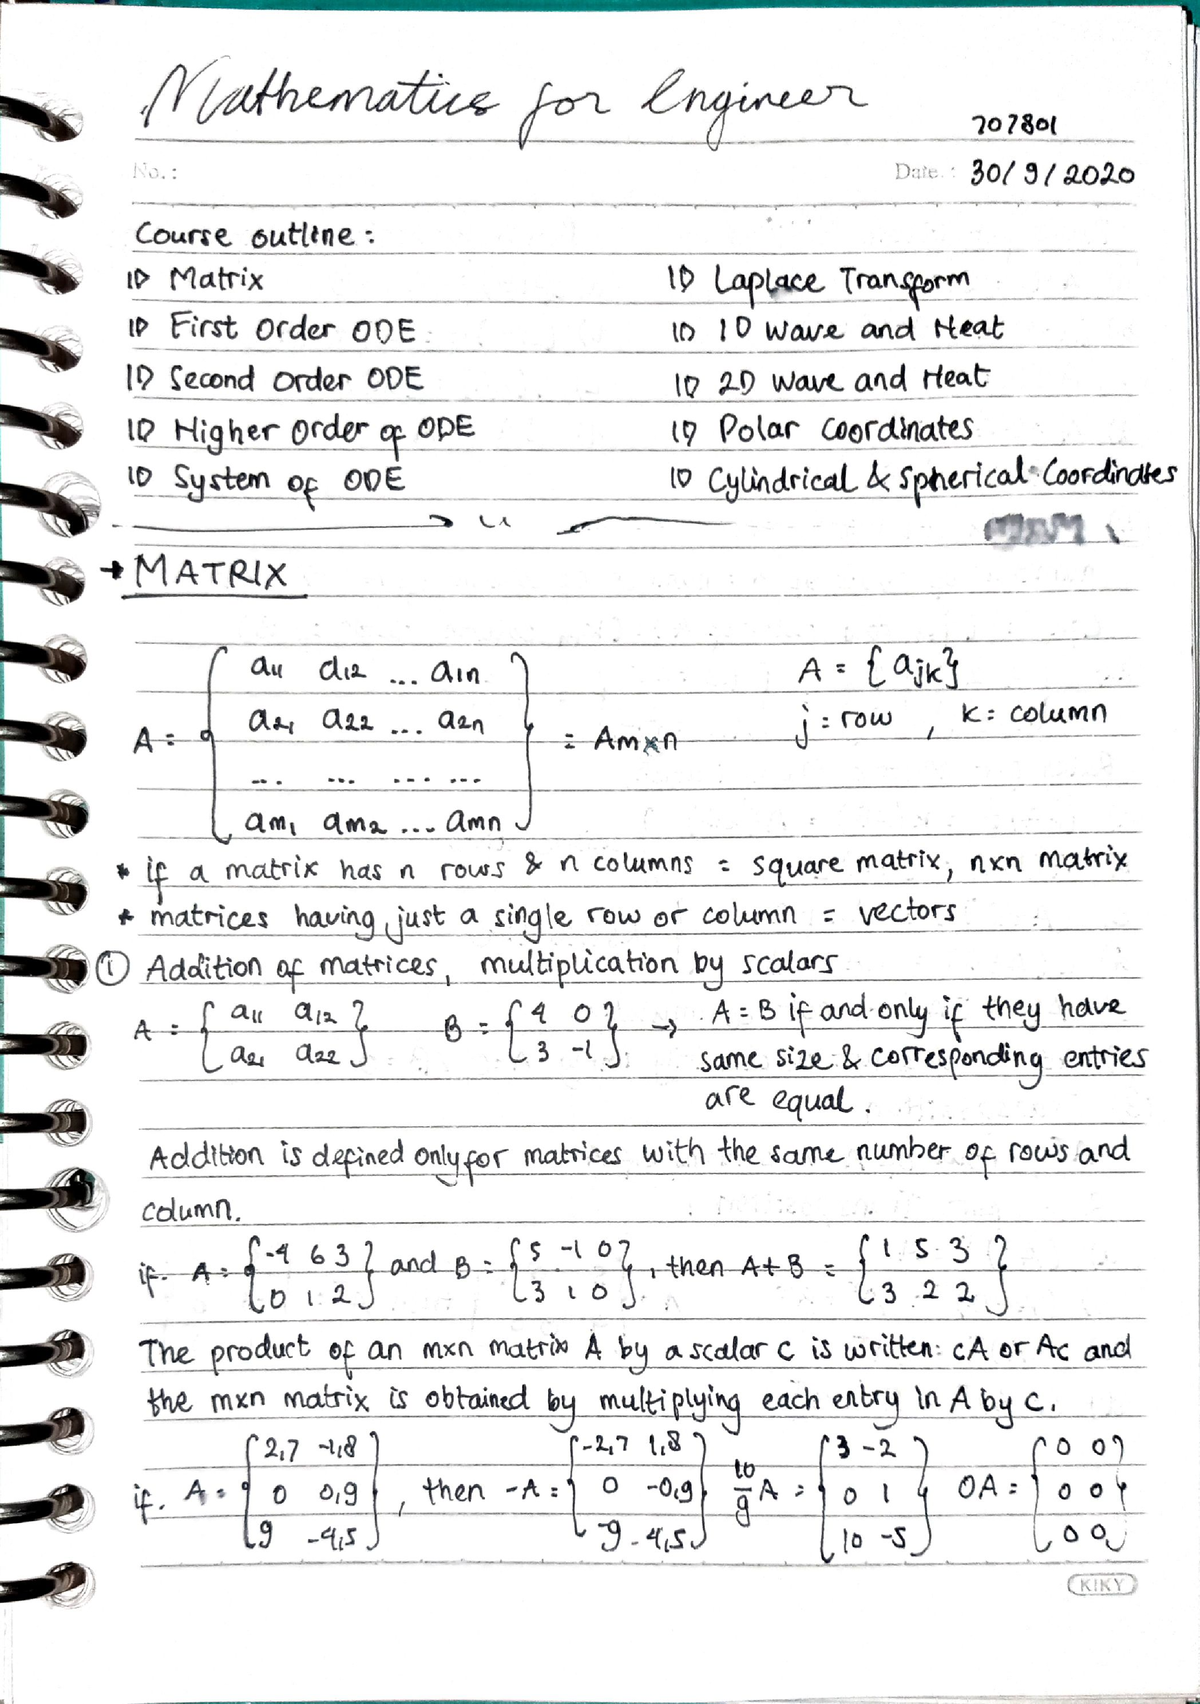 Mathematics for Engineer
707801
No.:
Date.: 30/9/2020
Course outline:
Matrix
Laplace Transform
First Order ODE
1D Wave and Heat
Second Order ODE
2D Wave and Heat
Higher Order of ODE
Polar Coordinates
System of ODE
Cylindrical & Spherical Coordinates
→ MATRIX
A = { a11 a12 ... a1n
a21 a22 ... a2n
.... ... .... ...
am1 am2 ... amn } = Amxn
A = {ajk}
j = row , k = column
* if a matrix has n rows & n columns = square matrix, nxn matrix
* matrices having just a single row or column = vectors
① Addition of matrices, multiplication by scalars
A = { a11 a12
a21 a22 }
B = { 4 0
3 -1 } →
A = B if and only if they have
same size & corresponding entries
are equal.
Addition is defined only for matrices with the same number of rows and
column.
if. A = { -4 6 3
0 1 2 } and B = { 5 -1 0
3 1 0 }, then A+B = { 1 5 3
3 2 2 }
The product of an mxn matrix A by a scalar c is written: cA or Ac and
the mxn matrix is obtained by multiplying each entry in A by c.
if. A = { 2,7 -1,8
0 0,9
9 -4,5 }, then -A = { -2,7 1,8
0 -0,9
-9 -4,5 } 10/9 A = { 3 -2
0 1
10 -5 } OA = { 0 0
0 0
0 0 }
KIKY